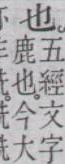 也。
五經文字
鹿也。今大